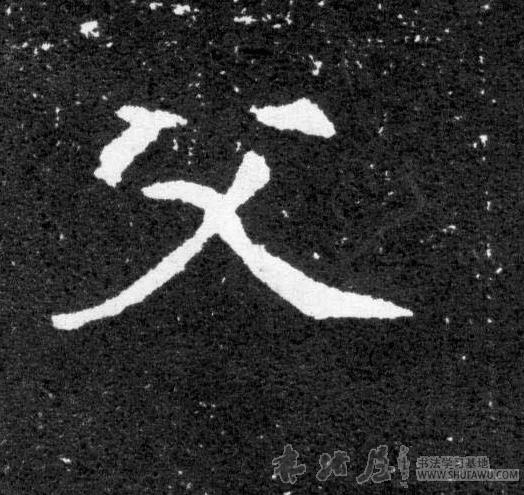 父
书法学习基地
WWW.SHUFAWU.COM